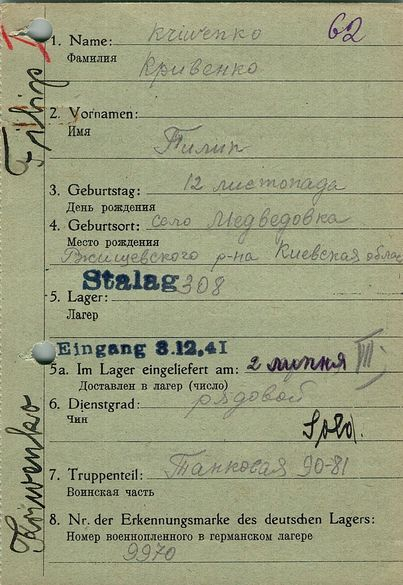 Kriwenko 62
1. Name:
Фамилия
Кривенко
2. Vornamen:
Имя
Пилип
3. Geburtstag: 12 листопада
День рождения
4. Geburtsort: село Медведовка
Место рождения
Ржищевского р-на Киевская облас
Stalag 308
5. Lager:
Лагер
Eingang 3.12.41
5a. Im Lager eingeliefert am: 2 липня VII
Доставлен в лагер (число)
6. Dienstgrad: рядовой
Чин
Sold.
7. Truppenteil: Танковая 90-81
Воинская часть
8. Nr. der Erkennungsmarke des deutschen Lagers:
Номер военнопленного в германском лагере
9970
Filip
Kriwenko